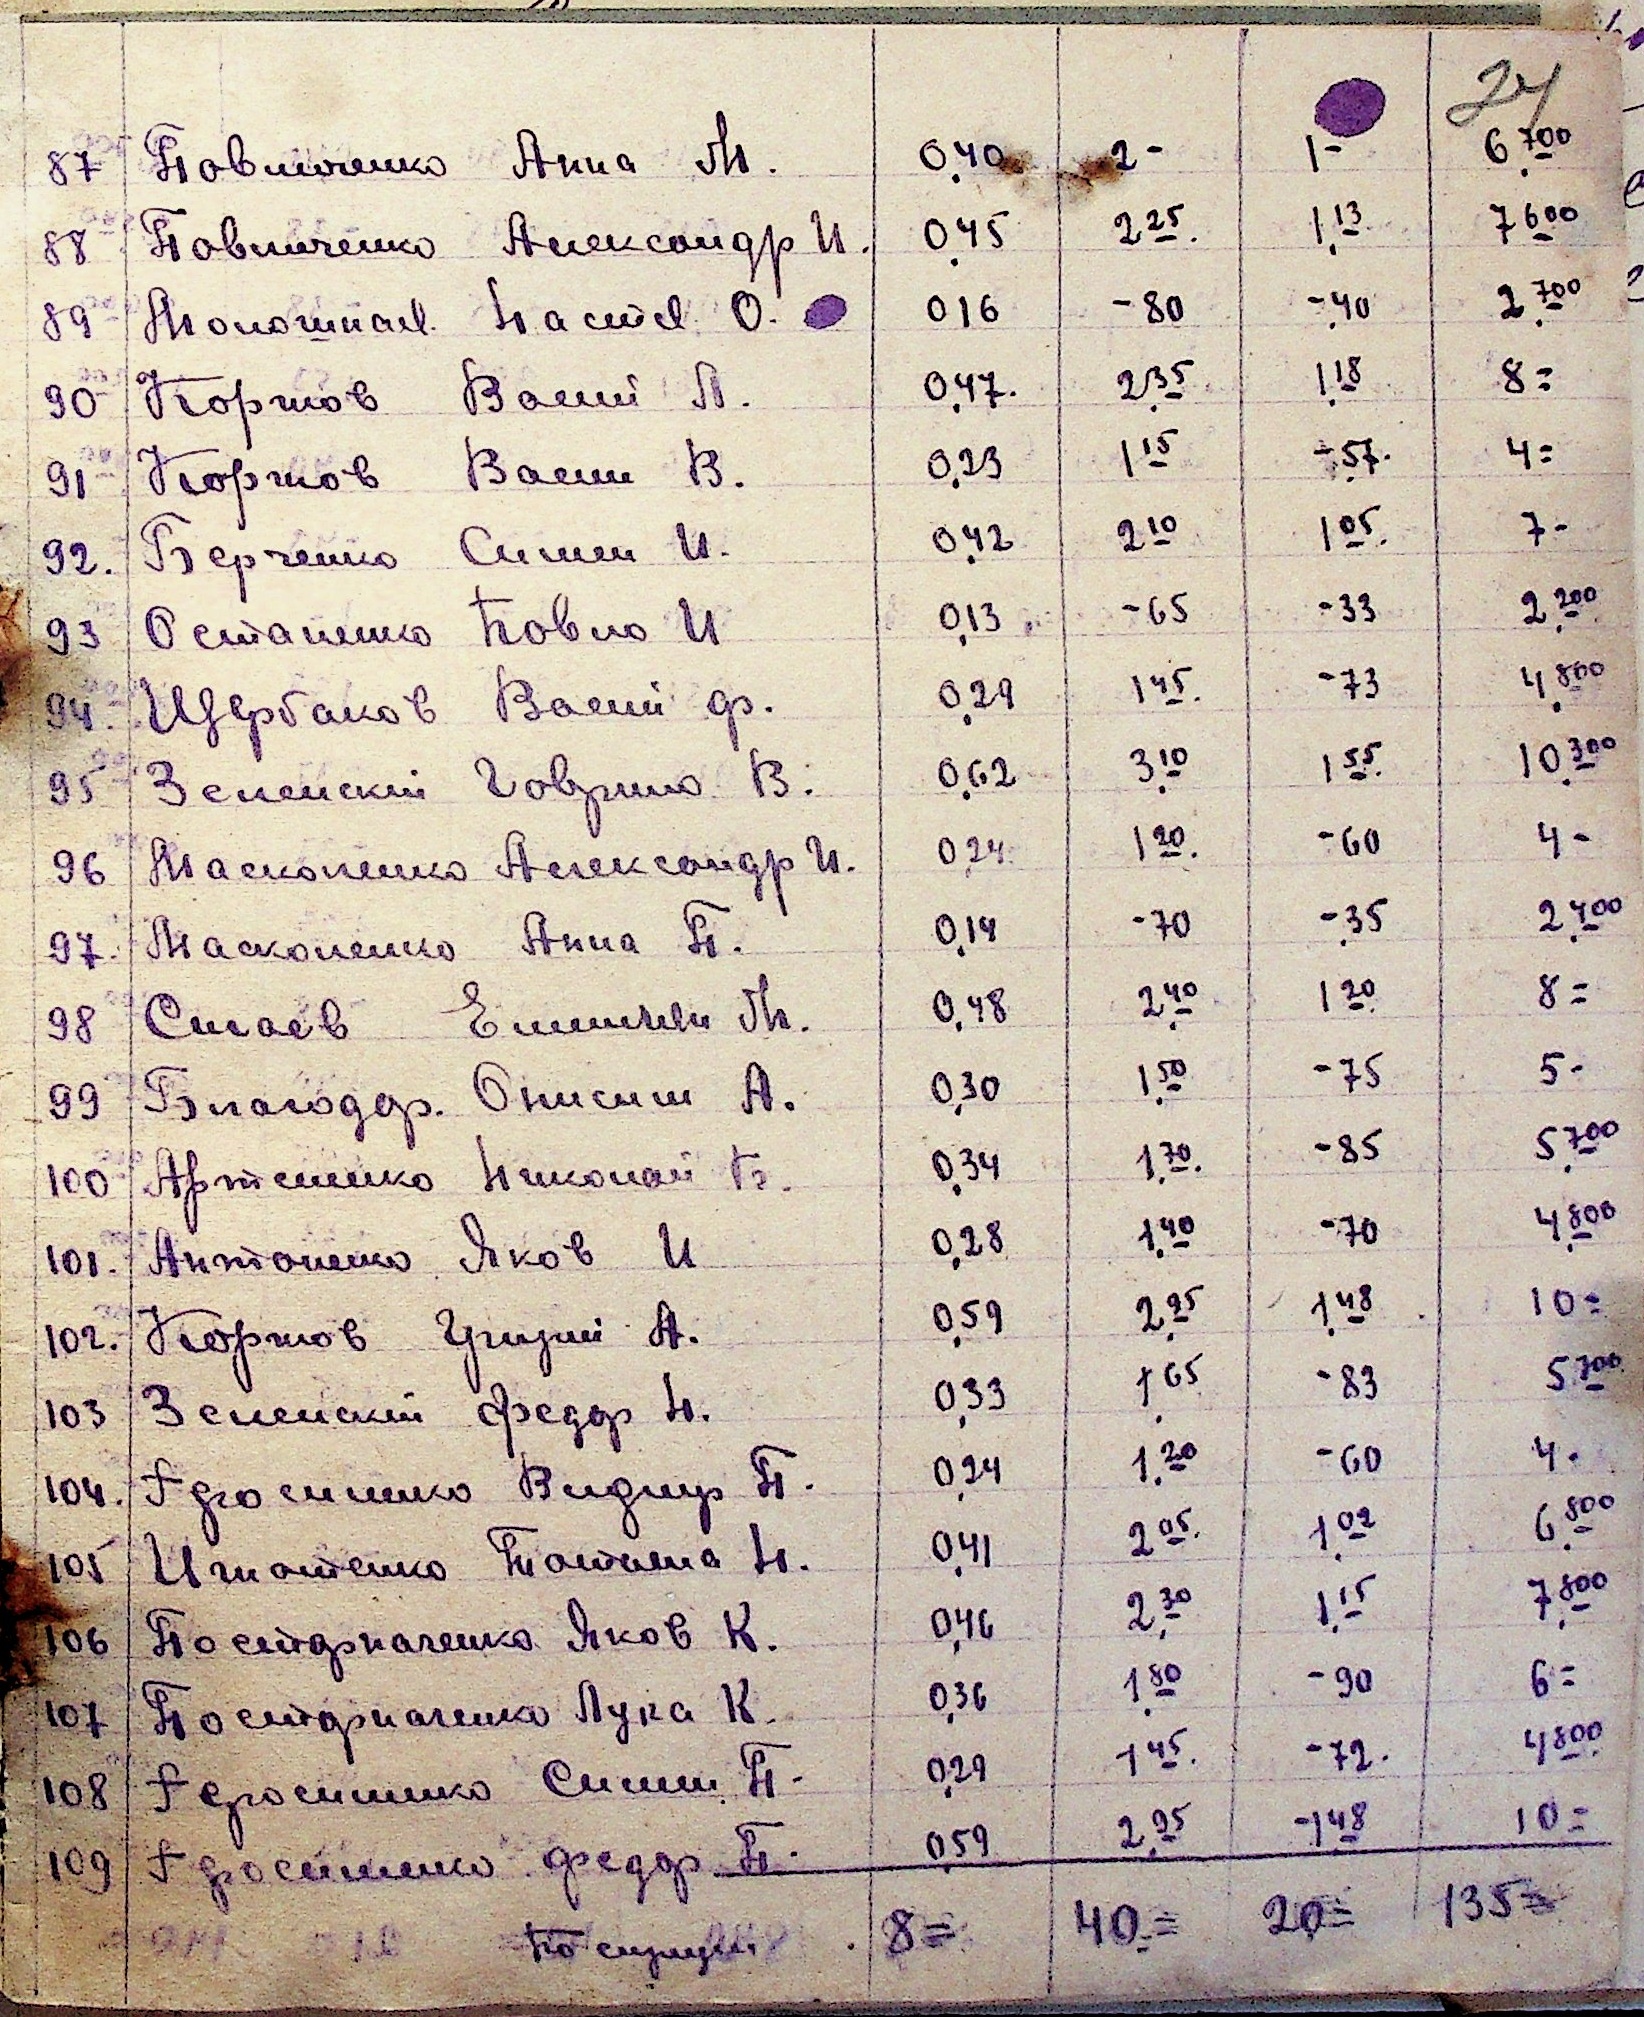 24
87 Павличенко Анна М. 0,40 2- 1- 6,700
88 Павличенко Александр И. 0,45 2 25. 1,13 7 600
89 Настя О. 0,16 -80 -40 2,700
90 Коржов Васил А. 0,47. 2,35. 1,18 8=
91 Коржов Васил В. 0,23 1 15 -57. 4=
92. Берченко Симон И. 0,42 2 10 1 05. 7-
93 Остапенко Павло И 0,13 -65 -33 2,200
94. Щербаков Васил Ф. 0,29 1 45. -73 4,800
95 Зеленский Говрило В. 0,62 3,10 1 55. 10,300
96 Масконенко Александр И. 0,24 1 20. -60 4-
97. Масконенко Анна П. 0,14 -70 -35 2,400
98 Силаев М. 0,48 2,40 1 20. 8=
99 Благодар. Онисим А. 0,30 1,50 -75 5-
100 Артеменко Николай 0,34 1,70. -85 5,700
101. Антоненко Яков И 0,28 1,40 -70 4,800
102. Коржов Григорий А. 0,59 2,95 1,48 10=
103 Зеленский Федор Н. 0,33 1,65 -83 5 700
104. П. 0,24 1,20 -60 4.
105 Игнатенко Наталия Н. 0,41 2 05. 1,02 6,800
106 Постарначенко Яков К. 0,46 2,30 1,15 7,800
107 Постарначенко Лука К. 0,36 1,80 -90 6=
108 Симон П. 0,29 1 45. -72. 4 800
109 Федор П. 0,59 2,95 -1,48 10=
8= 40= 20= 135=